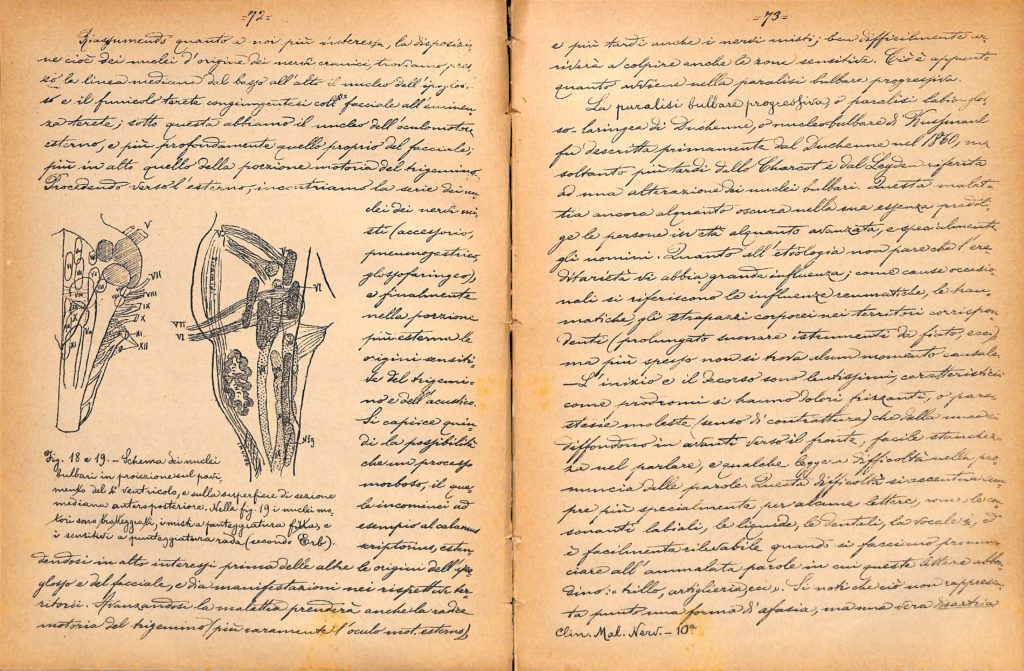 -72-
Riassumendo quanto a noi più interessa, la disposizio-
ne cioè dei nuclei d'origine dei nervi cranici, troviamo pres-
so la linea mediana dal basso all'alto il nucleo dell'ipoglos-
so e il funicolo terete congiungentesi coll' facciale all'eminen-
za terete; sotto questa abbiamo il nucleo dell'oculomotore
esterno, e più profondamente quello proprio del facciale;
più in alto quello della porzione motoria del trigemino.
Procedendo verso l'esterno, incontriamo la serie dei nu-
clei dei nervi mi-
sti (accessorio,
pneumogastrico,
glossofaringeo),
e finalmente
nella porzione
più esterna le
origini sensiti-
ve del trigemi-
no e dell'acustico.
Si capisce quin-
di la possibilità
che un processo
morboso, il qua-
le incominci ad
esempio al calamus
scriptorius, esten-
V
VII
VIII
IX
X
XI
XII
V
VI
VII
VI
Fig. 18 e 19. - Schema dei nuclei
bulbari in proiezione sul pavi-
mento del 4° ventricolo, e sulla superficie di sezione
mediana anteroposteriore. Nella fig. 19 i nuclei mo-
tori sono tratteggiati, i misti a punteggiatura fitta, e
i sensitivi a punteggiatura rada (secondo Erb).
dendosi in alto interessi prima delle altre le origini dell'ipo-
glosso e del facciale, e dia manifestazioni nei rispettivi ter-
ritorii. Avanzandosi la malattia prenderà anche la radice
motoria del trigemino (più raramente l'oculo mot. esterno),
-73-
e più tardi anche i nervi misti; ben difficilmente ar-
riverà a colpire anche le zone sensitive. Ciò è appunto
quanto avviene nella paralisi bulbare progressiva.
La paralisi bulbare progressiva, o paralisi labio-glos-
so-laringea di Duchenne, o nucleo bulbare di Kussmaul
fu descritta primamente dal Duchenne nel 1860, ma
soltanto più tardi dallo Charcot e dal Leyden riferita
ad una alterazione dei nuclei bulbari. Questa malat-
tia ancora alquanto oscura nella sua essenza predili-
ge le persone in età alquanto avanzata, e specialmente
gli uomini. Quanto all'etiologia non pare che l'ere-
ditarietà vi abbia grande influenza; come cause occasio-
nali si riferiscono le influenze reumatiche, le trau-
matiche, gli strapazzi corporei nei territori corrispon-
denti (prolungato suonare istrumenti da fiato, ecc.)
ma più spesso non si trova alcun momento causale.
- L'inizio e il decorso sono lentissimi, caratteristici
come prodromi si hanno dolori frizzanti, o pare-
stesie moleste (senso di contrattura) che dalla nuca si
diffondono in avanti verso il fronte, facile stanchez-
za nel parlare, e qualche leggera difficoltà nella pro-
nuncia delle parole. Questa difficoltà si accentua sem-
pre più specialmente per alcune lettere, come le con-
sonanti labiali, le liquide, le dentali, la vocale i, ed
è facilmente rilevabile quando si facciano pronun-
ciare all'ammalato parole in cui queste lettere abbon-
dino: trillo, artiglieria, ecc. Si noti che ciò non rappresen-
ta punto una forma d'afasia, ma una vera disartria
Clin. Mal. Nerv. - 10ª